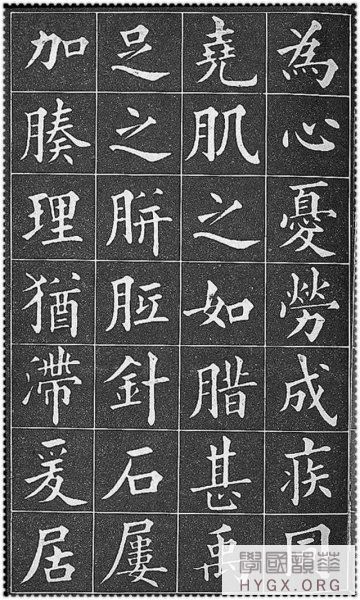 為心憂勞成疾同
堯肌之如腊甚禹
足之胼胝針石屢
加腠理猶滯爰居
華韻國學
HYGX.ORG